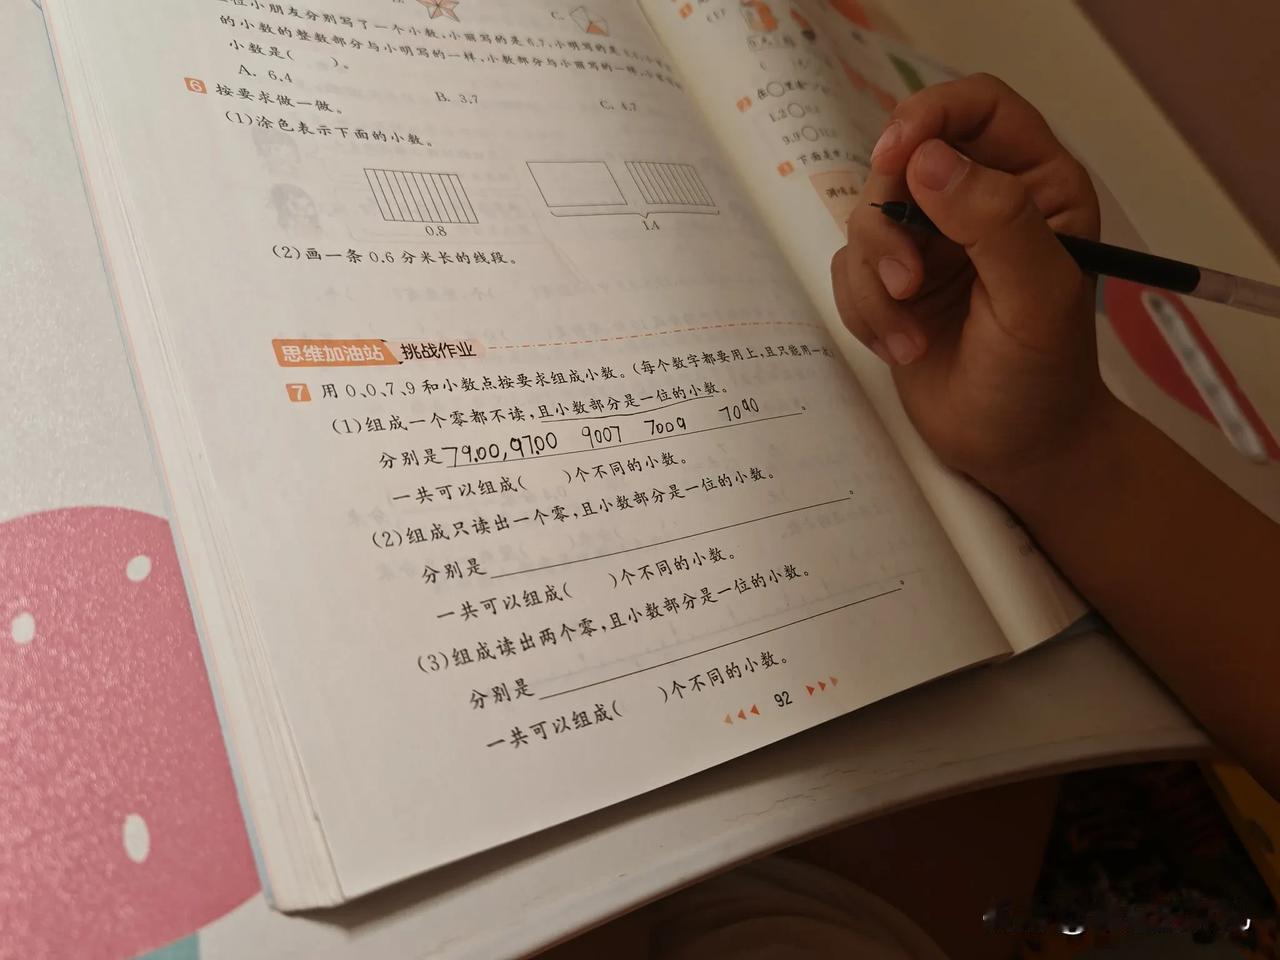 C.
位小朋友分别写了一个小数,小丽写的是6.7,小明写的是
的小数的整数部分与小明写的一样,小数部分与小丽写的一样,小
小数是( )。
A. 6.4
B. 3.7
C. 4.7
6 按要求做一做。
(1)涂色表示下面的小数。
0.8
1.4
(2)画一条0.6分米长的线段。
思维加油站 挑战作业
7 用0、0、7、9和小数点按要求组成小数。(每个数字都要用上,且只能用一
(1)组成一个零都不读,且小数部分是一位的小数。
分别是7900,9700 9007 7009 7090。
一共可以组成( )个不同的小数。
(2)组成只读出一个零,且小数部分是一位的小数。
分别是 。
一共可以组成( )个不同的小数。
(3)组成读出两个零,且小数部分是一位的小数。
分别是 。
一共可以组成( )个不同的小数。
92
在○里
1.2○
9.9○
下面是
调味品